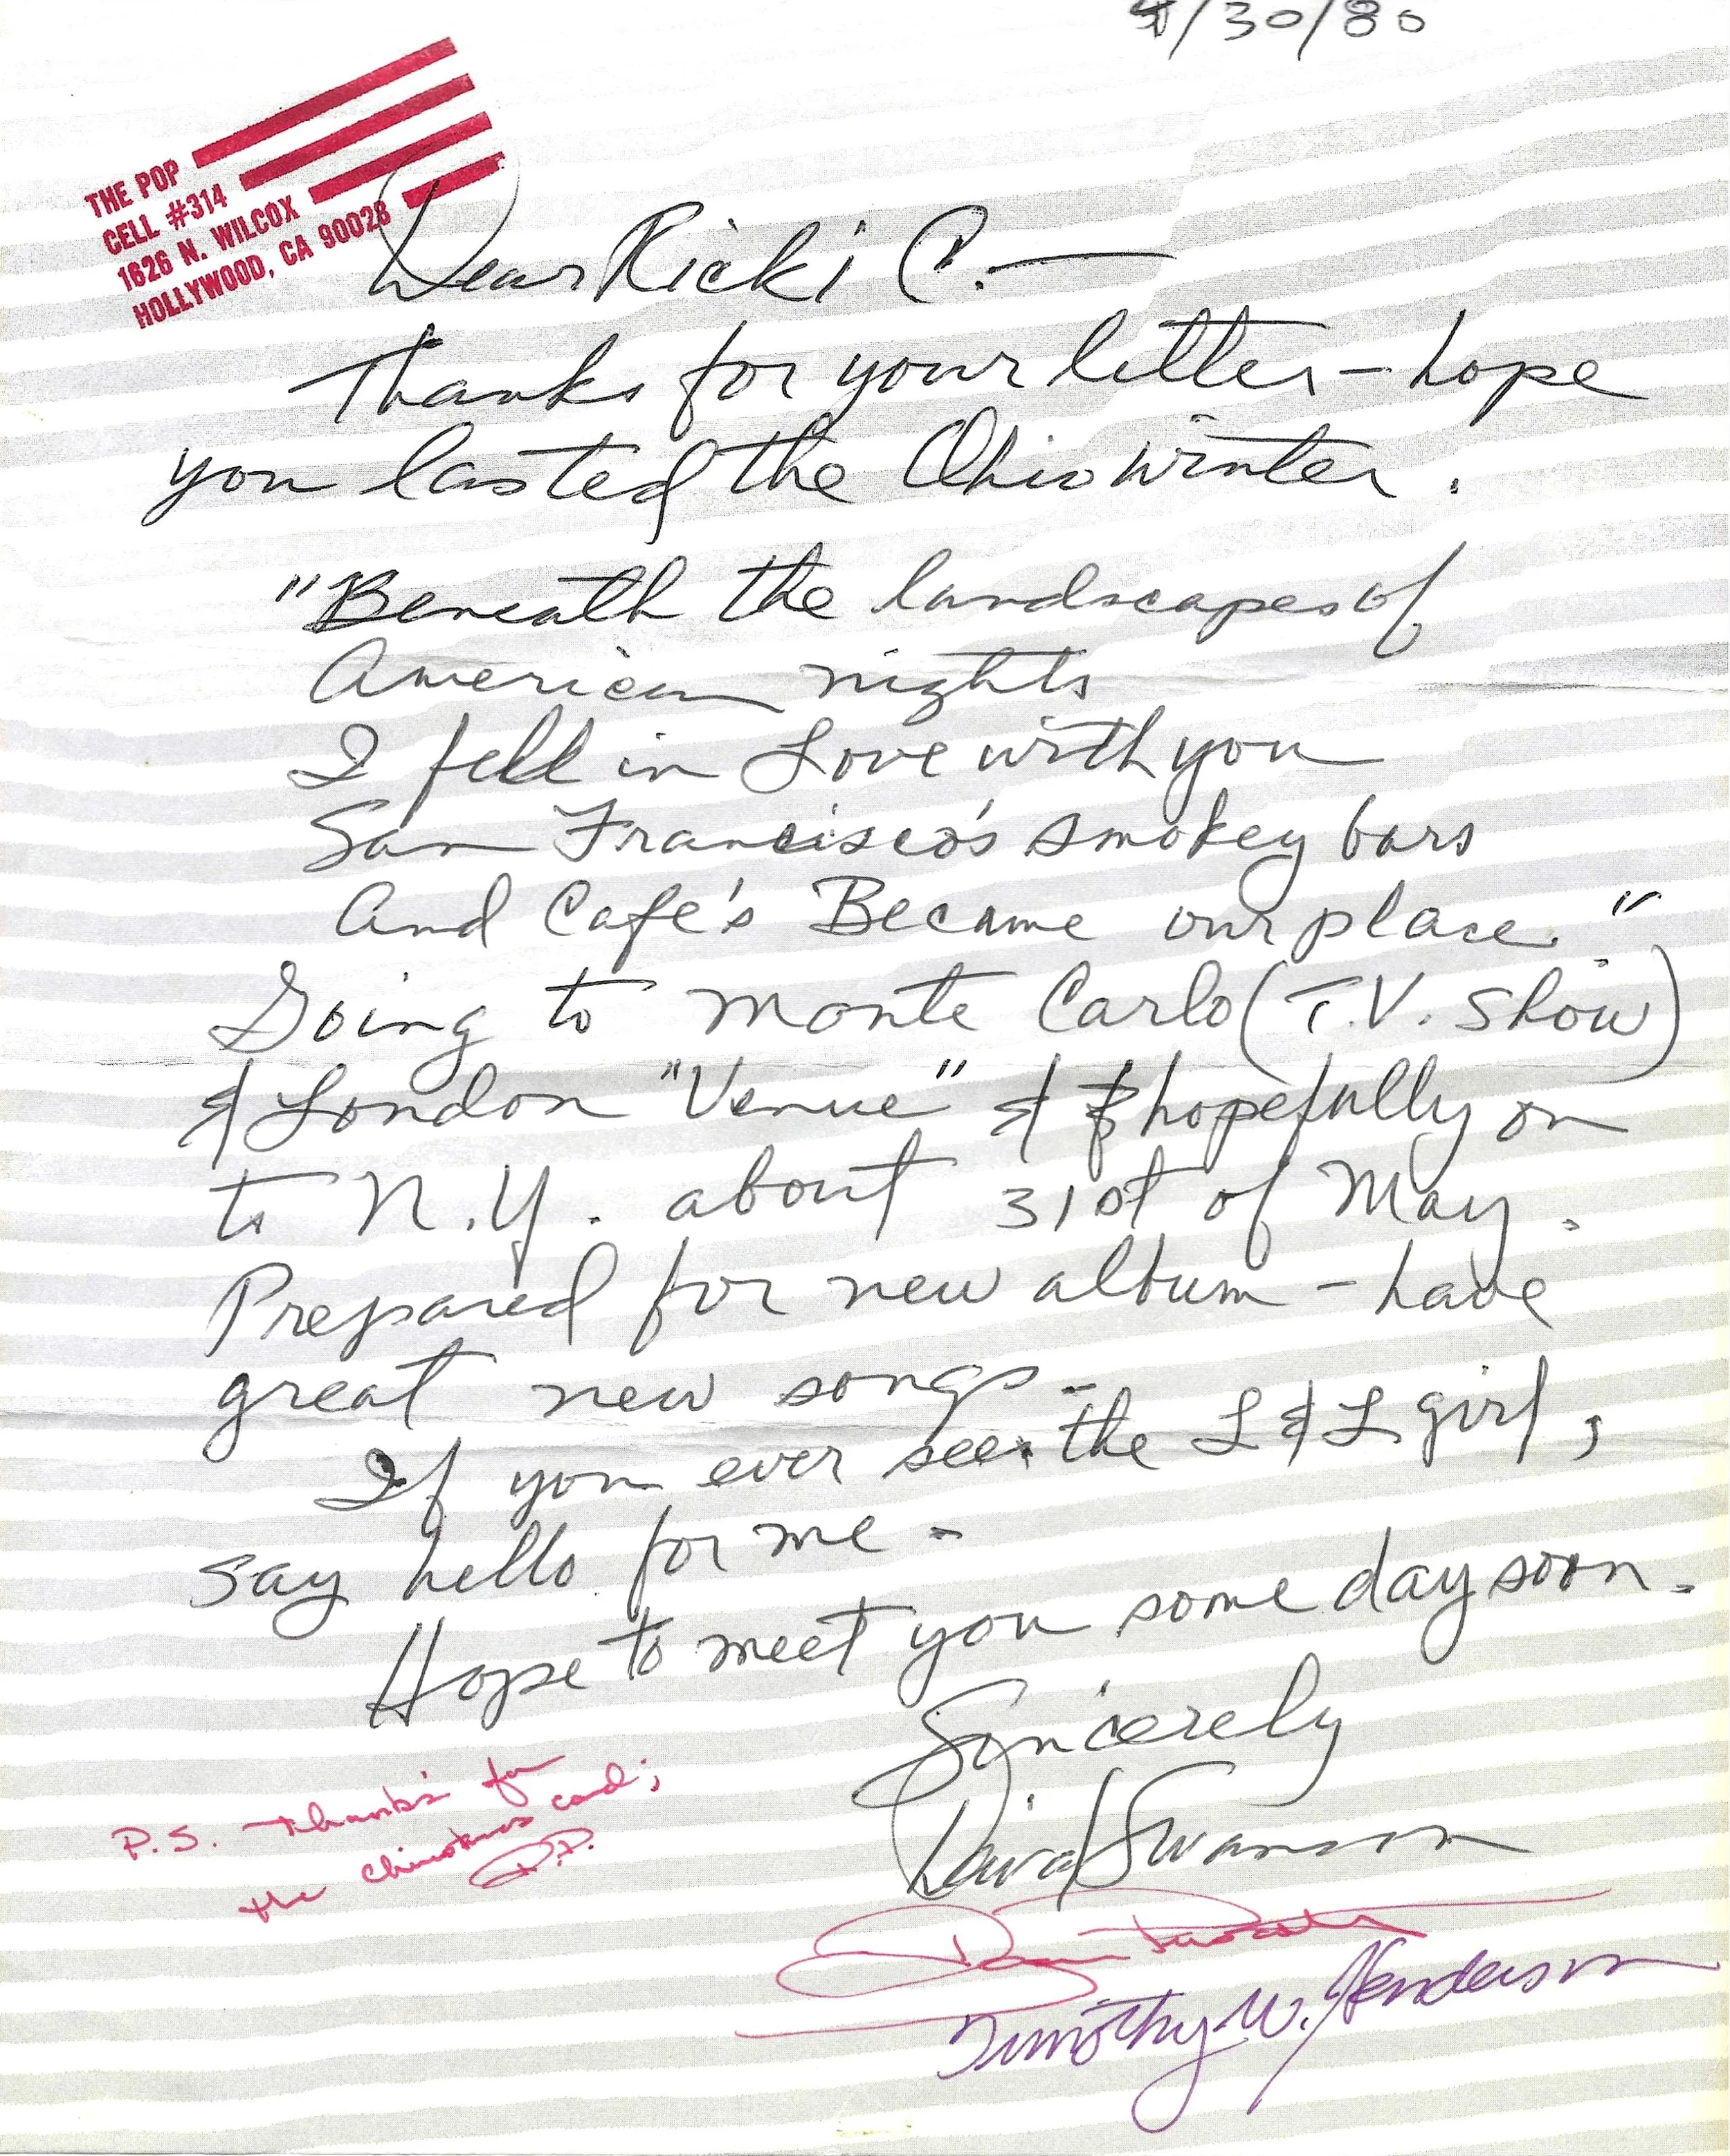 4/30/80
THE POP
CELL #314
1626 N. WILCOX
HOLLYWOOD, CA 90028
Dear Ricki C. —
Thanks for your letter - hope
you lasted the Ohio winter.
"Beneath the landscapes of
American nights
I fell in Love with you
San Francisco's smokey bars
And Cafe's Became our place."
Going to Monte Carlo (T.V. Show)
& London "Venue" & hopefully on
to N.Y. about 31st of May.
Prepared for new album - have
great new songs -
If you ever see the L & L girl,
say hello for me -
Hope to meet you some day soon.
Sincerely
David Swanson
P.S. Thanks for
the christmas card;
D.P.
Timothy W. Henderson